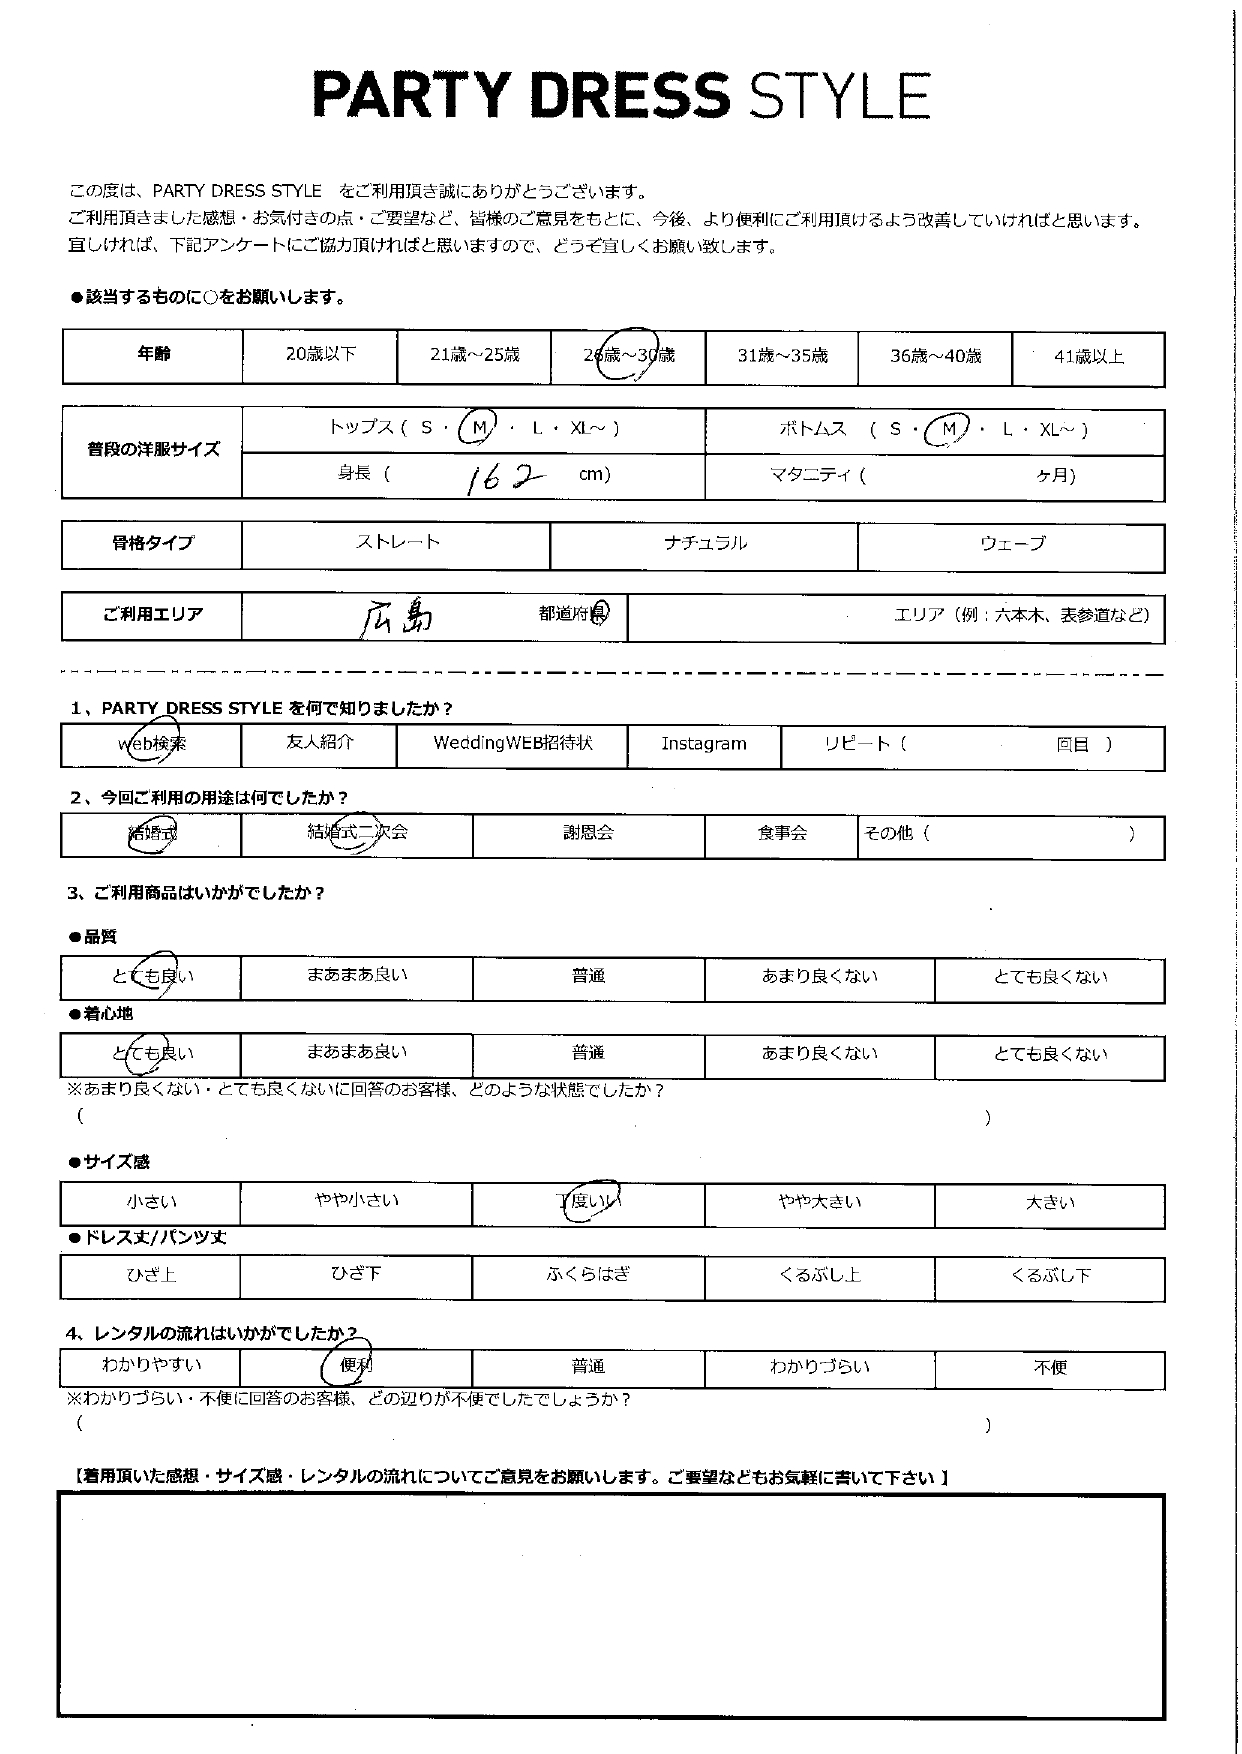 PARTY DRESS STYLE
この度は、PARTY DRESS STYLE をご利用頂き誠にありがとうございます。
ご利用頂きました感想・お気付きの点・ご要望など、皆様のご意見をもとに、今後、より便利にご利用頂けるよう改善していければと思います。
宜しければ、下記アンケートにご協力頂ければと思いますので、どうぞ宜しくお願い致します。
●該当するものに○をお願いします。
年齢 20歳以下 21歳～25歳 26歳～30歳 31歳～35歳 36歳～40歳 41歳以上
普段の洋服サイズ トップス ( S ・ M ・ L ・ XL～ ) ボトムス ( S ・ M ・ L ・ XL～ )
身長 ( 162 cm) マタニティ ( ヶ月)
骨格タイプ ストレート ナチュラル ウェーブ
ご利用エリア 広島 都道府県 エリア（例：六本木、表参道など）
1、PARTY DRESS STYLE を何で知りましたか？
web検索 友人紹介 WeddingWEB招待状 Instagram リピート ( 回目 )
2、今回ご利用の用途は何でしたか？
結婚式 結婚式二次会 謝恩会 食事会 その他 ( )
3、ご利用商品はいかがでしたか？
●品質
とても良い まあまあ良い 普通 あまり良くない とても良くない
●着心地
とても良い まあまあ良い 普通 あまり良くない とても良くない
※あまり良くない・とても良くないに回答のお客様、どのような状態でしたか？
( )
●サイズ感
小さい やや小さい 丁度いい やや大きい 大きい
●ドレス丈/パンツ丈
ひざ上 ひざ下 ふくらはぎ くるぶし上 くるぶし下
4、レンタルの流れはいかがでしたか？
わかりやすい 便利 普通 わかりづらい 不便
※わかりづらい・不便に回答のお客様、どの辺りが不便でしたでしょうか？
( )
【着用頂いた感想・サイズ感・レンタルの流れについてご意見をお願いします。ご要望などもお気軽に書いて下さい 】